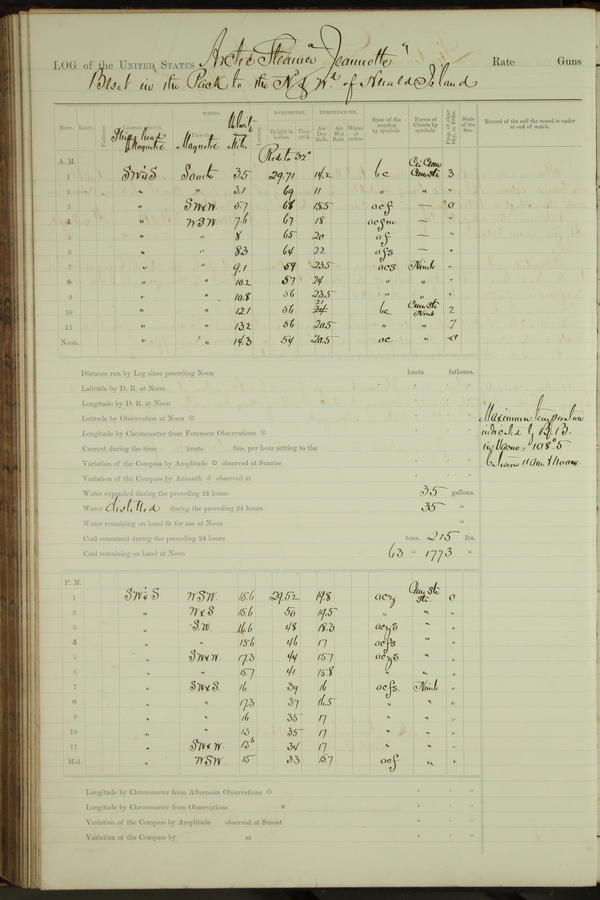 LOG of the UNITED STATES Arctic Steamer "Jeannette" Rate Guns
Beset in the Pack to the N & Wd of Herald Island
Hour. Knots. Fathoms. WINDS. Velocity BAROMETER. TEMPERATURE. State of the weather by symbols. Forms of Clouds by symbols. Prop. of clear Sky, in 10ths. State of the Sea. Record of the sail the vessel is under at end of watch.
Ship's head Magnetic Magnetic Miles Height in inches. Ther. att'd. Air Dry Bulb. Air Wet Bulb. Water at surface.
A. M. Red. to 32°
Cir Cum
1 SW¾S South 3.5 29.71 14.2 bc Cum Sti 3
2 " " 3.1 69 11 " " "
3 " SWxW 5.7 68 15.5 acf — 0
4 " WSW 7.6 67 18 acfm — "
5 " " 8 65 20 af — "
6 " " 8.3 64 22 afs — "
7 " " 9.1 59 23.5 acs Nimb "
8 " " 10.2 57 24 " " "
9 " " 10.8 56 23.5 " " "
10 " " 12.1 56 24 bc Cum Sti Nimb 2
11 " " 13.2 56 20.5 " " 7
Noon. " " 14.3 54 20.5 ac " 0
Distance run by Log since preceding Noon knots fathoms.
Latitude by D. R. at Noon ° ' "
Longitude by D. R. at Noon ° ' "
Latitude by Observation at Noon ° ' "
Longitude by Chronometer from Forenoon Observations ° ' "
Current during the time knots fms. per hour setting to the
Variation of the Compass by Amplitude observed at Sunrise ° ' "
Variation of the Compass by Azimuth observed at ° ' "
Water expended during the preceding 24 hours 35 gallons.
Water distilled during the preceding 24 hours 35 "
Water remaining on hand fit for use at Noon "
Coal consumed during the preceding 24 hours tons. 215 lbs.
Coal remaining on hand at Noon 63 " 1773 "
Maximum temperature
indicated by B. B.
in Vacuo = 108°.5
between 11 am & noon.
P. M.
1 SW¾S WSW. 15.6 29.52 19.8 acz Cum Sti Sti. 0
2 " WxS 15.6 50 19.5 " " "
3 " S.W. 16.6 48 18.3 aczs " "
4 " " 15.6 46 17 acfs " "
5 " SWxW. 17.3 44 15.7 aczs " "
6 " " 15.7 41 15.8 " " "
7 " SWxS. 16 39 16 acfs. Nimb "
8 " " 17.3 37 16.5 " " "
9 " " 16 35 17 " " "
10 " " 13 35 17 " " "
11 " SWxW. 13.6 34 17 " " "
Mid. " WSW. 15 33 15.7 acf " "
Longitude by Chronometer from Afternoon Observations ° ' "
Longitude by Chronometer from Observations ° ' "
Variation of the Compass by Amplitude observed at Sunset ° ' "
Variation of the Compass by at ° ' "